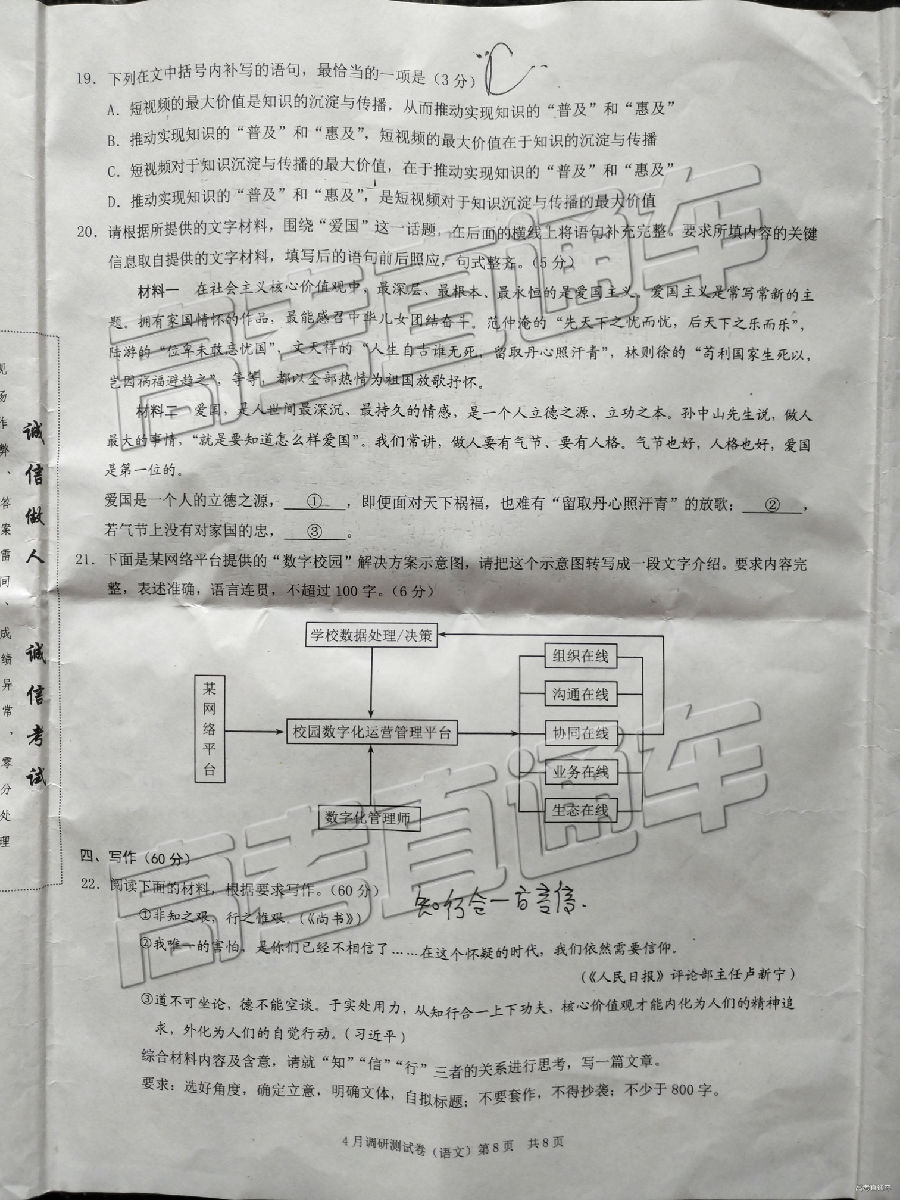 19. 下列在文中括号内补写的语句，最恰当的一项是（3分）
A. 短视频的最大价值是知识的沉淀与传播，从而推动实现知识的“普及”和“惠及”
B. 推动实现知识的“普及”和“惠及”，短视频的最大价值在于知识的沉淀与传播
C. 短视频对于知识沉淀与传播的最大价值，在于推动实现知识的“普及”和“惠及”
D. 推动实现知识的“普及”和“惠及”，是短视频对于知识沉淀与传播的最大价值
20. 请根据所提供的文字材料，围绕“爱国”这一话题，在后面的横线上将语句补充完整。要求所填内容的关键
信息取自提供的文字材料，填写后的语句前后照应，句式整齐。（5分）
材料一 在社会主义核心价值观中，最深层、最根本、最永恒的是爱国主义。爱国主义是常写常新的主
题。拥有家国情怀的作品，最能感召中华儿女团结奋斗。范仲淹的“先天下之忧而忧，后天下之乐而乐”，
陆游的“位卑未敢忘忧国”，文天祥的“人生自古谁无死，留取丹心照汗青”，林则徐的“苟利国家生死以，
岂因祸福避趋之”，等等，都以全部热情为祖国放歌抒怀。
材料二 爱国，是人世间最深沉、最持久的情感，是一个人立德之源、立功之本。孙中山先生说，做人
最大的事情，“就是要知道怎么样爱国”。我们常讲，做人要有气节、要有人格。气节也好，人格也好，爱国
是第一位的。
爱国是一个人的立德之源，①，即便面对天下祸福，也难有“留取丹心照汗青”的放歌；②，
若气节上没有对家国的忠，③。
21. 下面是某网络平台提供的“数字校园”解决方案示意图，请把这个示意图转写成一段文字介绍。要求内容完
整，表述准确，语言连贯，不超过100字。（6分）
学校数据处理/决策
组织在线
某网络平台
沟通在线
校园数字化运营管理平台
协同在线
业务在线
数字化管理师
生态在线
四、写作（60分）
22. 阅读下面的材料，根据要求写作。（60分）
知行合一
①非知之艰，行之惟艰。（《尚书》）
②我唯一的害怕，是你们已经不相信了……在这个怀疑的时代，我们依然需要信仰。
（《人民日报》评论部主任卢新宁）
③道不可坐论，德不能空谈。于实处用力，从知行合一上下功夫，核心价值观才能内化为人们的精神追
求，外化为人们的自觉行动。（习近平）
综合材料内容及含意，请就“知”“信”“行”三者的关系进行思考，写一篇文章。
要求：选好角度，确定立意，明确文体，自拟标题；不要套作，不得抄袭；不少于800字。
4月调研测试卷（语文）第8页 共8页
诚信做人 诚信考试
答案雷同、成绩异常，零分处理
高考直通车
高考直通车